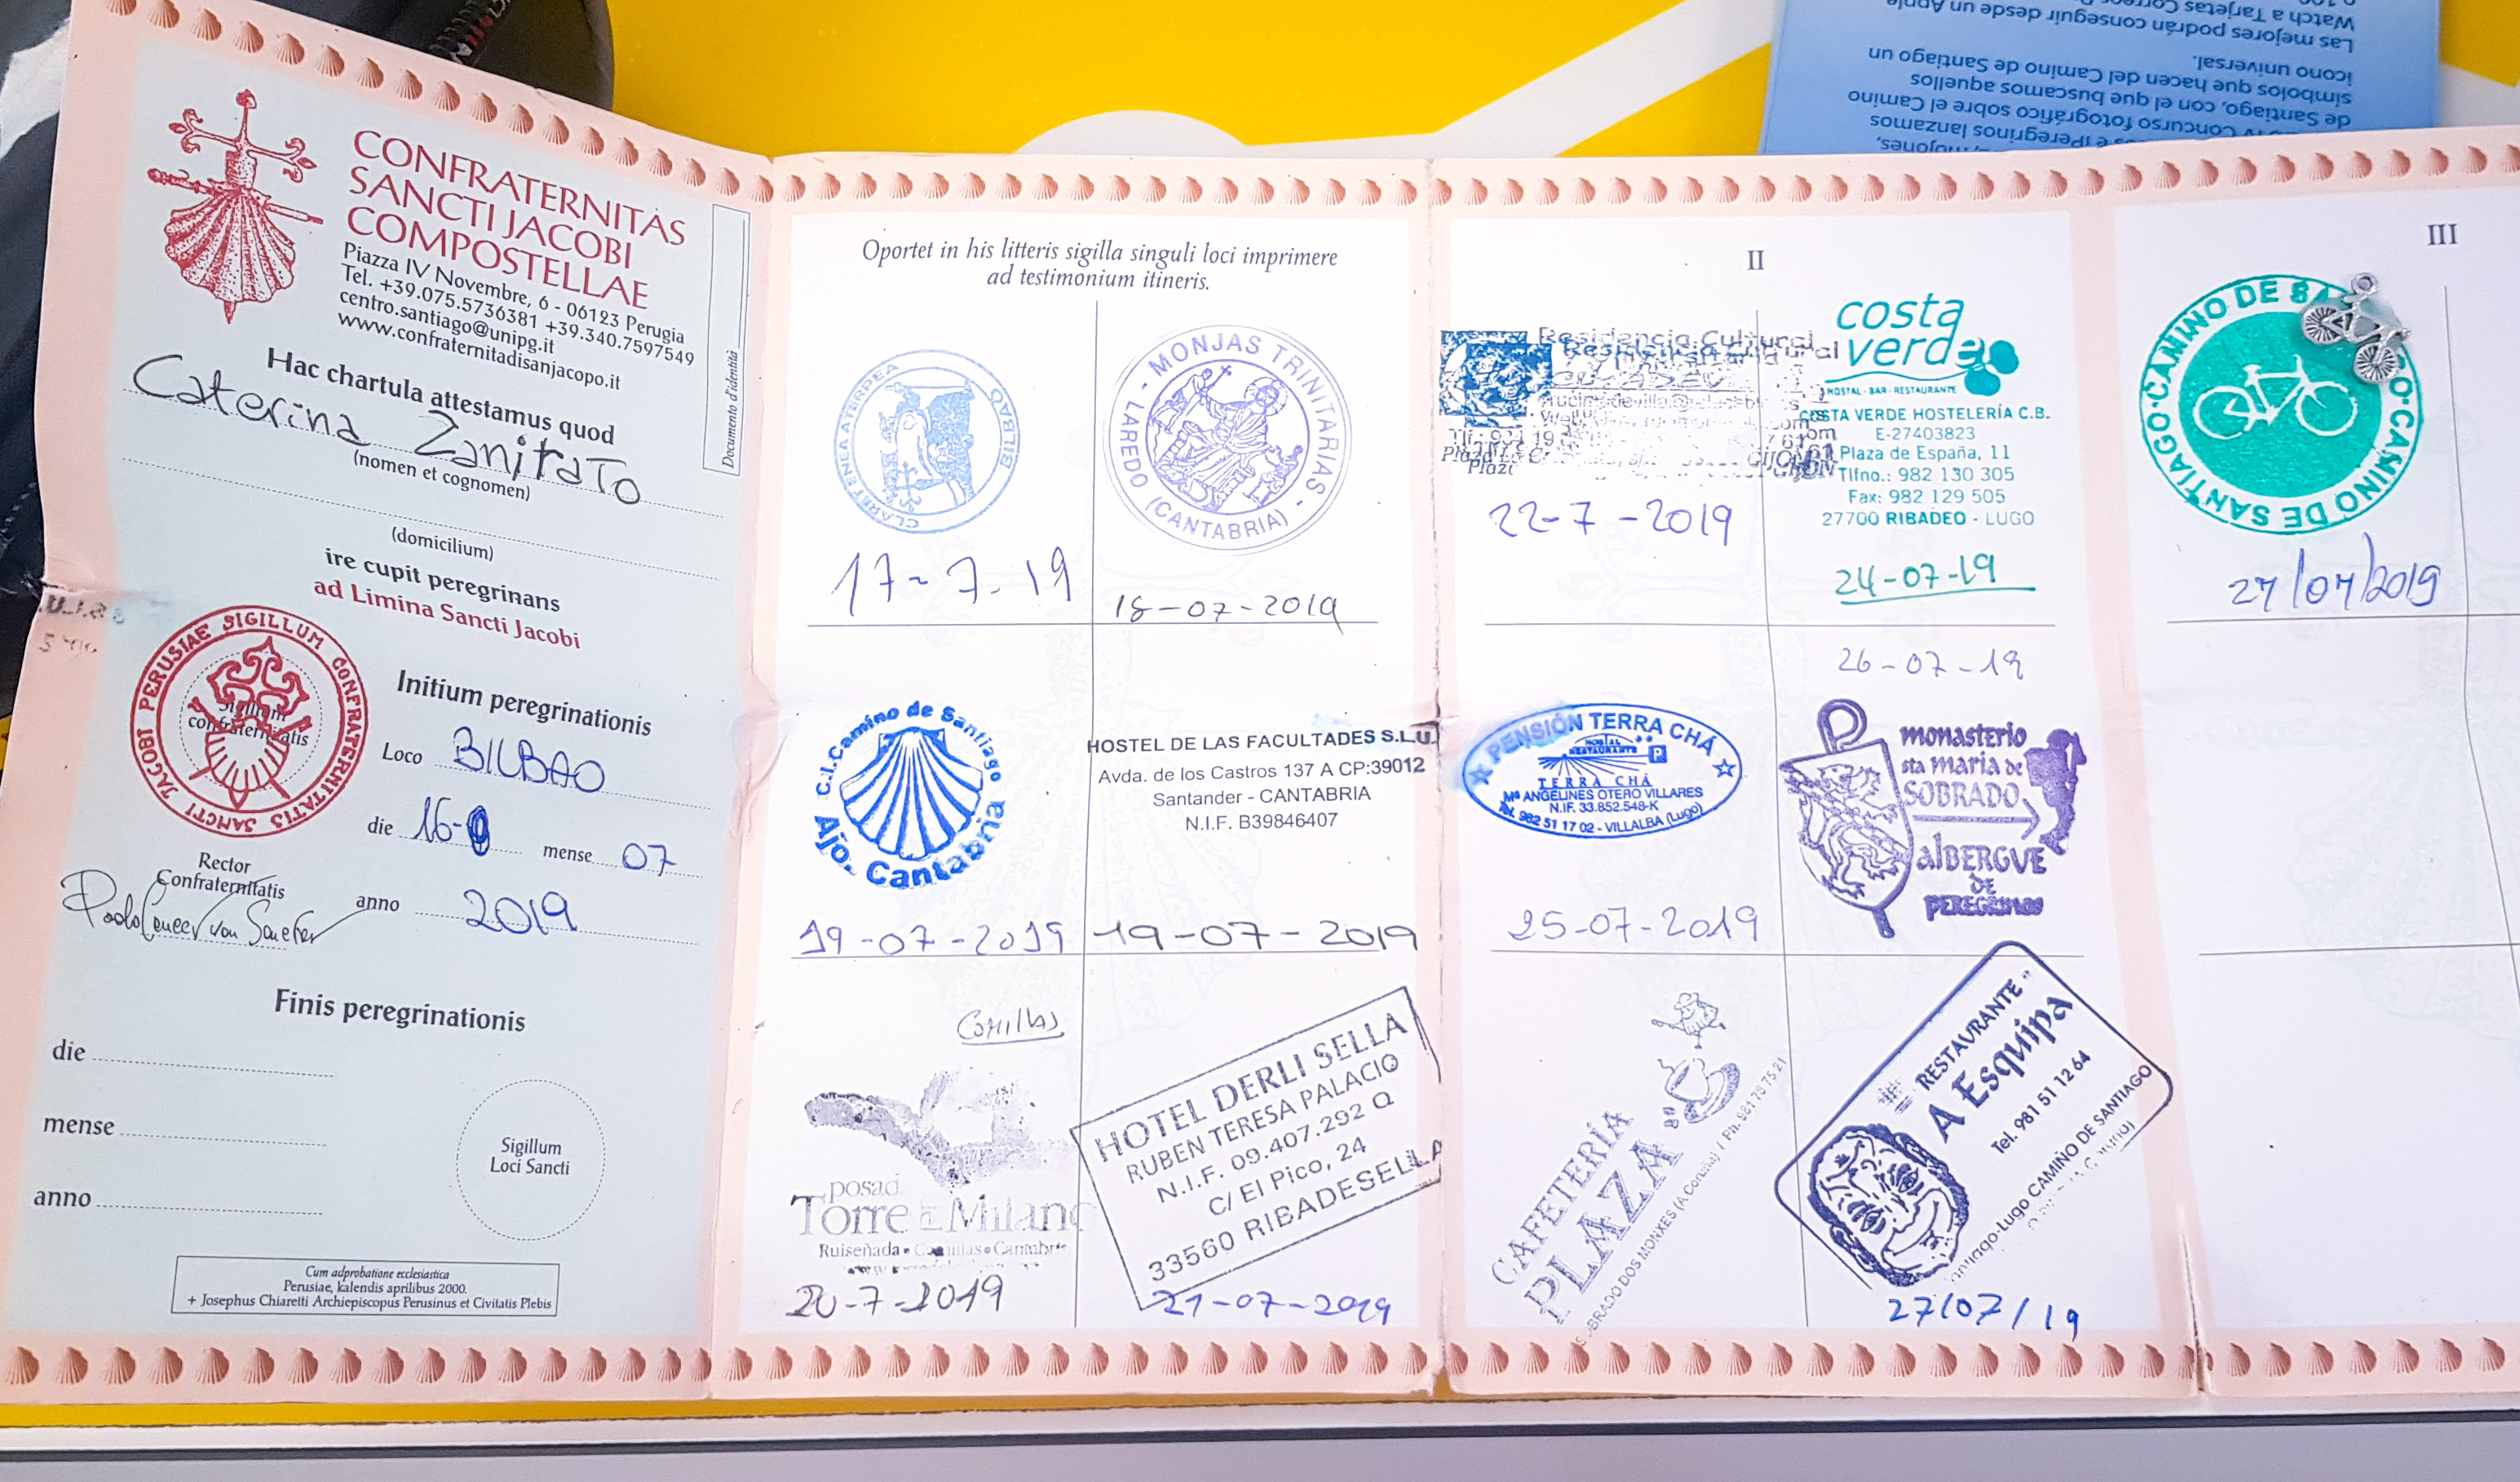 CONFRATERNITAS
SANCTI JACOBI
COMPOSTELLAE
Piazza IV Novembre, 6 - 06123 Perugia
Tel. +39.075.5736381 +39.340.7597549
centro.santiago@unipg.it
www.confraternitadisanjacopo.it
Documento d'identità
Hac chartula attestamus quod
Caterina ZaniraTo
(nomen et cognomen)
(domicilium)
ire cupit peregrinans
ad Limina Sancti Jacobi
PERUSIAE SIGILLUM CONFRATERNITATIS SANCTI JACOBI
Sigillum
confraternitatis
Initium peregrinationis
Loco BILBAO
die 16
mense 07
anno 2019
Rector
Confraternitatis
Finis peregrinationis
die
mense
anno
Sigillum
Loci Sancti
Cum adprobatione ecclesiastica
Perusiae, kalendis aprilibus 2000.
+ Josephus Chiaretti Archiepiscopus Perusinus et Civitatis Plebis
Oportet in his litteris sigilla singuli loci imprimere
ad testimonium itineris.
BILBAO
17-7-19
MONJAS TRINITARIAS -
LAREDO (CANTABRIA) -
18-07-2019
C.I. Camino de Santiago
Ajo. Cantabria
19-07-2019
HOSTEL DE LAS FACULTADES S.L.U.
Avda. de los Castros 137 A CP:39012
Santander - CANTABRIA
N.I.F. B39846407
19-07-2019
Comillas
posad
Torre Milano
Ruiseñada • Comillas • Cantabria
20-7-2019
HOTEL DERLI SELLA
RUBEN TERESA PALACIO
N.I.F. 09.407.292 Q
C/ El Pico, 24
33560 RIBADESELLA
21-07-2019
II
Residencia Cultural
GIJON
22-7-2019
costa
verde
HOSTAL - BAR - RESTAURANTE
COSTA VERDE HOSTELERÍA C.B.
E-27403823
Plaza de España, 11
Tlfno.: 982 130 305
Fax: 982 129 505
27700 RIBADEO - LUGO
24-07-19
PENSIÓN TERRA CHÁ
HOSTAL
RESTAURANTE P
TERRA CHÁ
Mª ANGELINES OTERO VILLARES
N.IF. 33.852.548-K
Tel. 982 51 17 02 - VILLALBA (Lugo)
25-07-2019
26-07-19
monasterio
sta maria de
SOBRADO
alBERGUE
DE
PEREGRINOS
CAFETERÍA
PLAZA
SOBRADO DOS MONXES (A Coruña) / Tfn. 981 78 75 21
RESTAURANTE
A Esquipa
Tel. 981 51 12 64
Lugo CAMIÑO DE SANTIAGO
27/07/19
III
CAMINO DE SANTIAGO·CAMINO DE SANTIAGO·
27/07/2019
Watch a Tarjetas
Las mejores podrán conseguir desde un Apple
icono universal.
símbolos que hacen del Camino de Santiago un
de Santiago, con el que buscamos aquellos
IV Concurso fotográfico sobre el Camino
e IPeregrinos lanzamos
mojones,